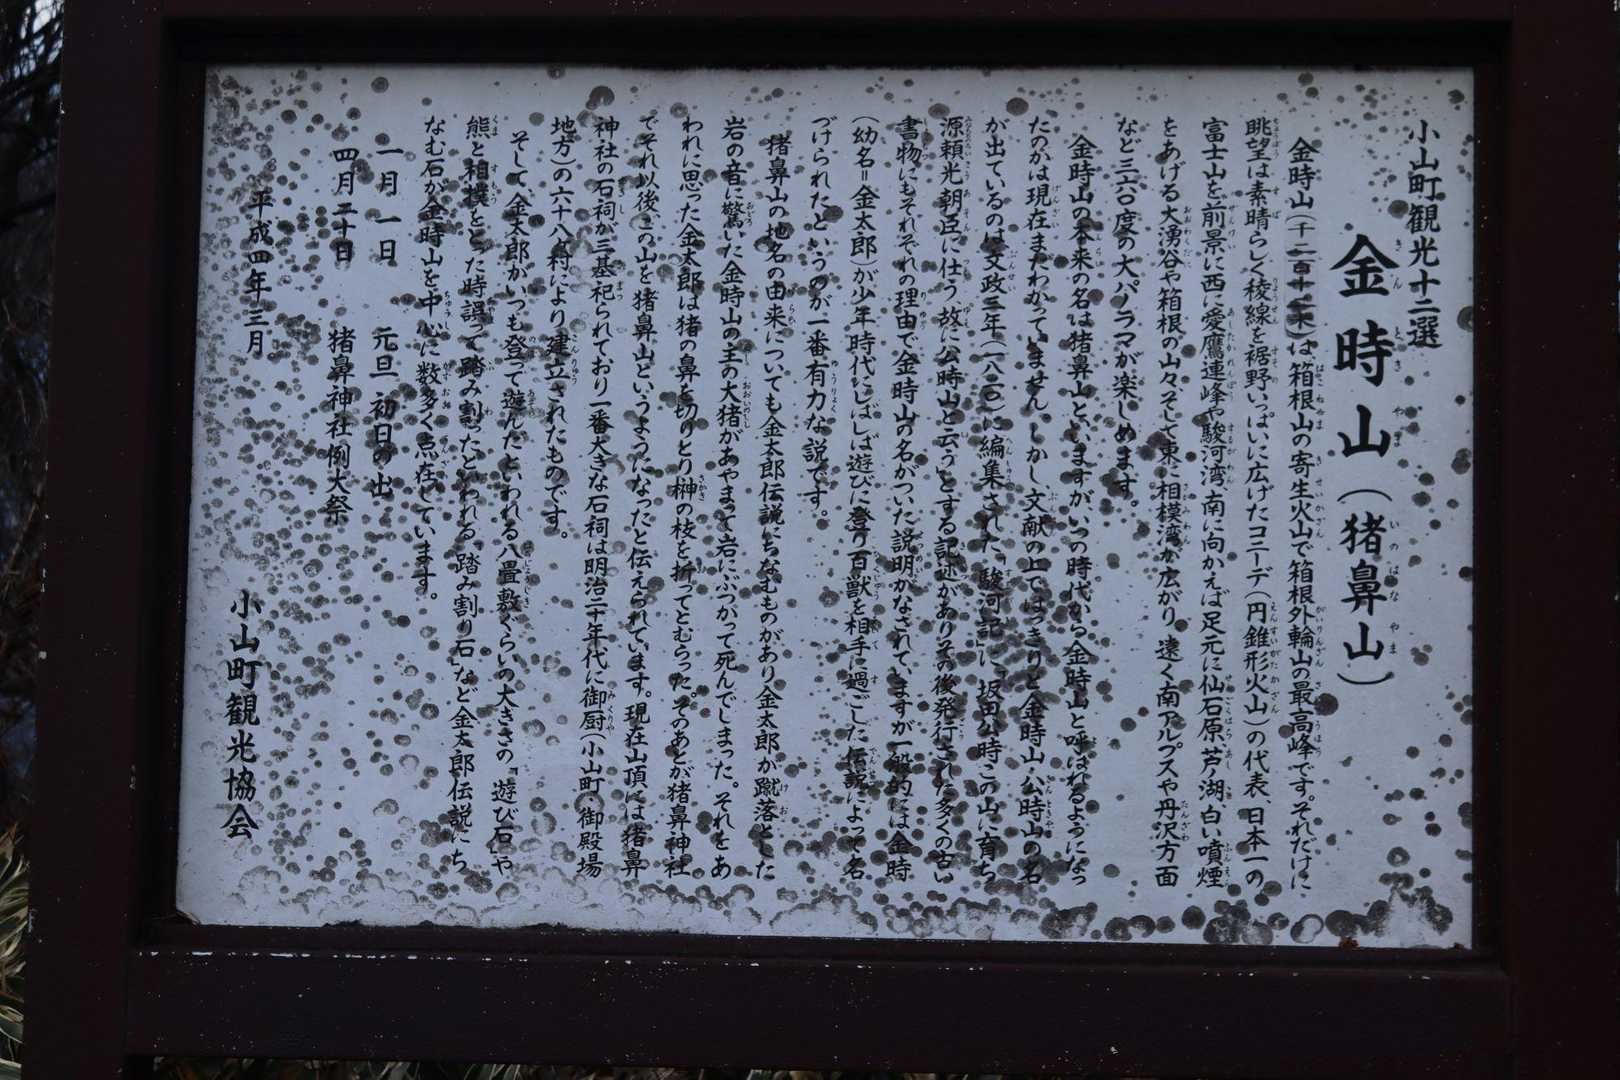 小山町観光十二選
金時山（猪鼻山）
金時山（千二百十二米）は箱根山の寄生火山で箱根外輪山の最高峰です。それだけに
眺望は素晴らしく稜線を裾野いっぱいに広げたコニーデ（円錐形火山）の代表、日本一の
富士山を前景に西に愛鷹連峰や駿河湾、南に向かえば足元に仙石原、芦ノ湖、白い噴煙
をあげる大湧谷や箱根の山々、そして東に相模湾が広がり、遠く南アルプスや丹沢方面
など三六〇度の大パノラマが楽しめます。
金時山の本来の名は猪鼻山といいますがいつの時代から金時山と呼ばれるようになっ
たのかは現在まだわかっていません。しかし、文献の上ではっきりと金時山、公時山の名
が出ているのは、文政三年（一八二〇）に編集された「駿河記」に「坂田公時この山に育ち
源頼光朝臣に仕う、故に公時山と云う」とする記述がありその後発行された多くの古い
書物にもそれぞれの理由で金時山の名がついた説明がなされていますが一般的には金時
（幼名＝金太郎）が少年時代にしばしば遊びに登り百獣を相手に過ごした伝説によって名
づけられたというのが一番有力な説です。
猪鼻山の地名の由来についても金太郎伝説にちなむものがあり金太郎が蹴落とした
岩の音に驚いた金時山の主の大猪があやまって岩にぶつかって死んでしまった。それをあ
われに思った金太郎は猪の鼻を切りとり榊の枝を折ってとむらった。そのあとが猪鼻神社
でそれ以後、この山を猪鼻山というようになったと伝えられています。現在山頂には猪鼻
神社の石祠が三基祀られており一番大きな石祠は明治二十年代に御厨（小山町、御殿場
地方）の六十八カ村により建立されたものです。
そして、金太郎がいつも登って遊んだといわれる八畳敷ぐらいの大きさの「遊び石」や
熊と相撲をとった時誤って踏み割ったといわれる「踏み割り石」など金太郎伝説にち
なむ石が金時山を中心に数多く点在しています。
一月一日　元旦　初日の出
四月二十日　猪鼻神社例大祭
平成四年三月
小山町観光協会